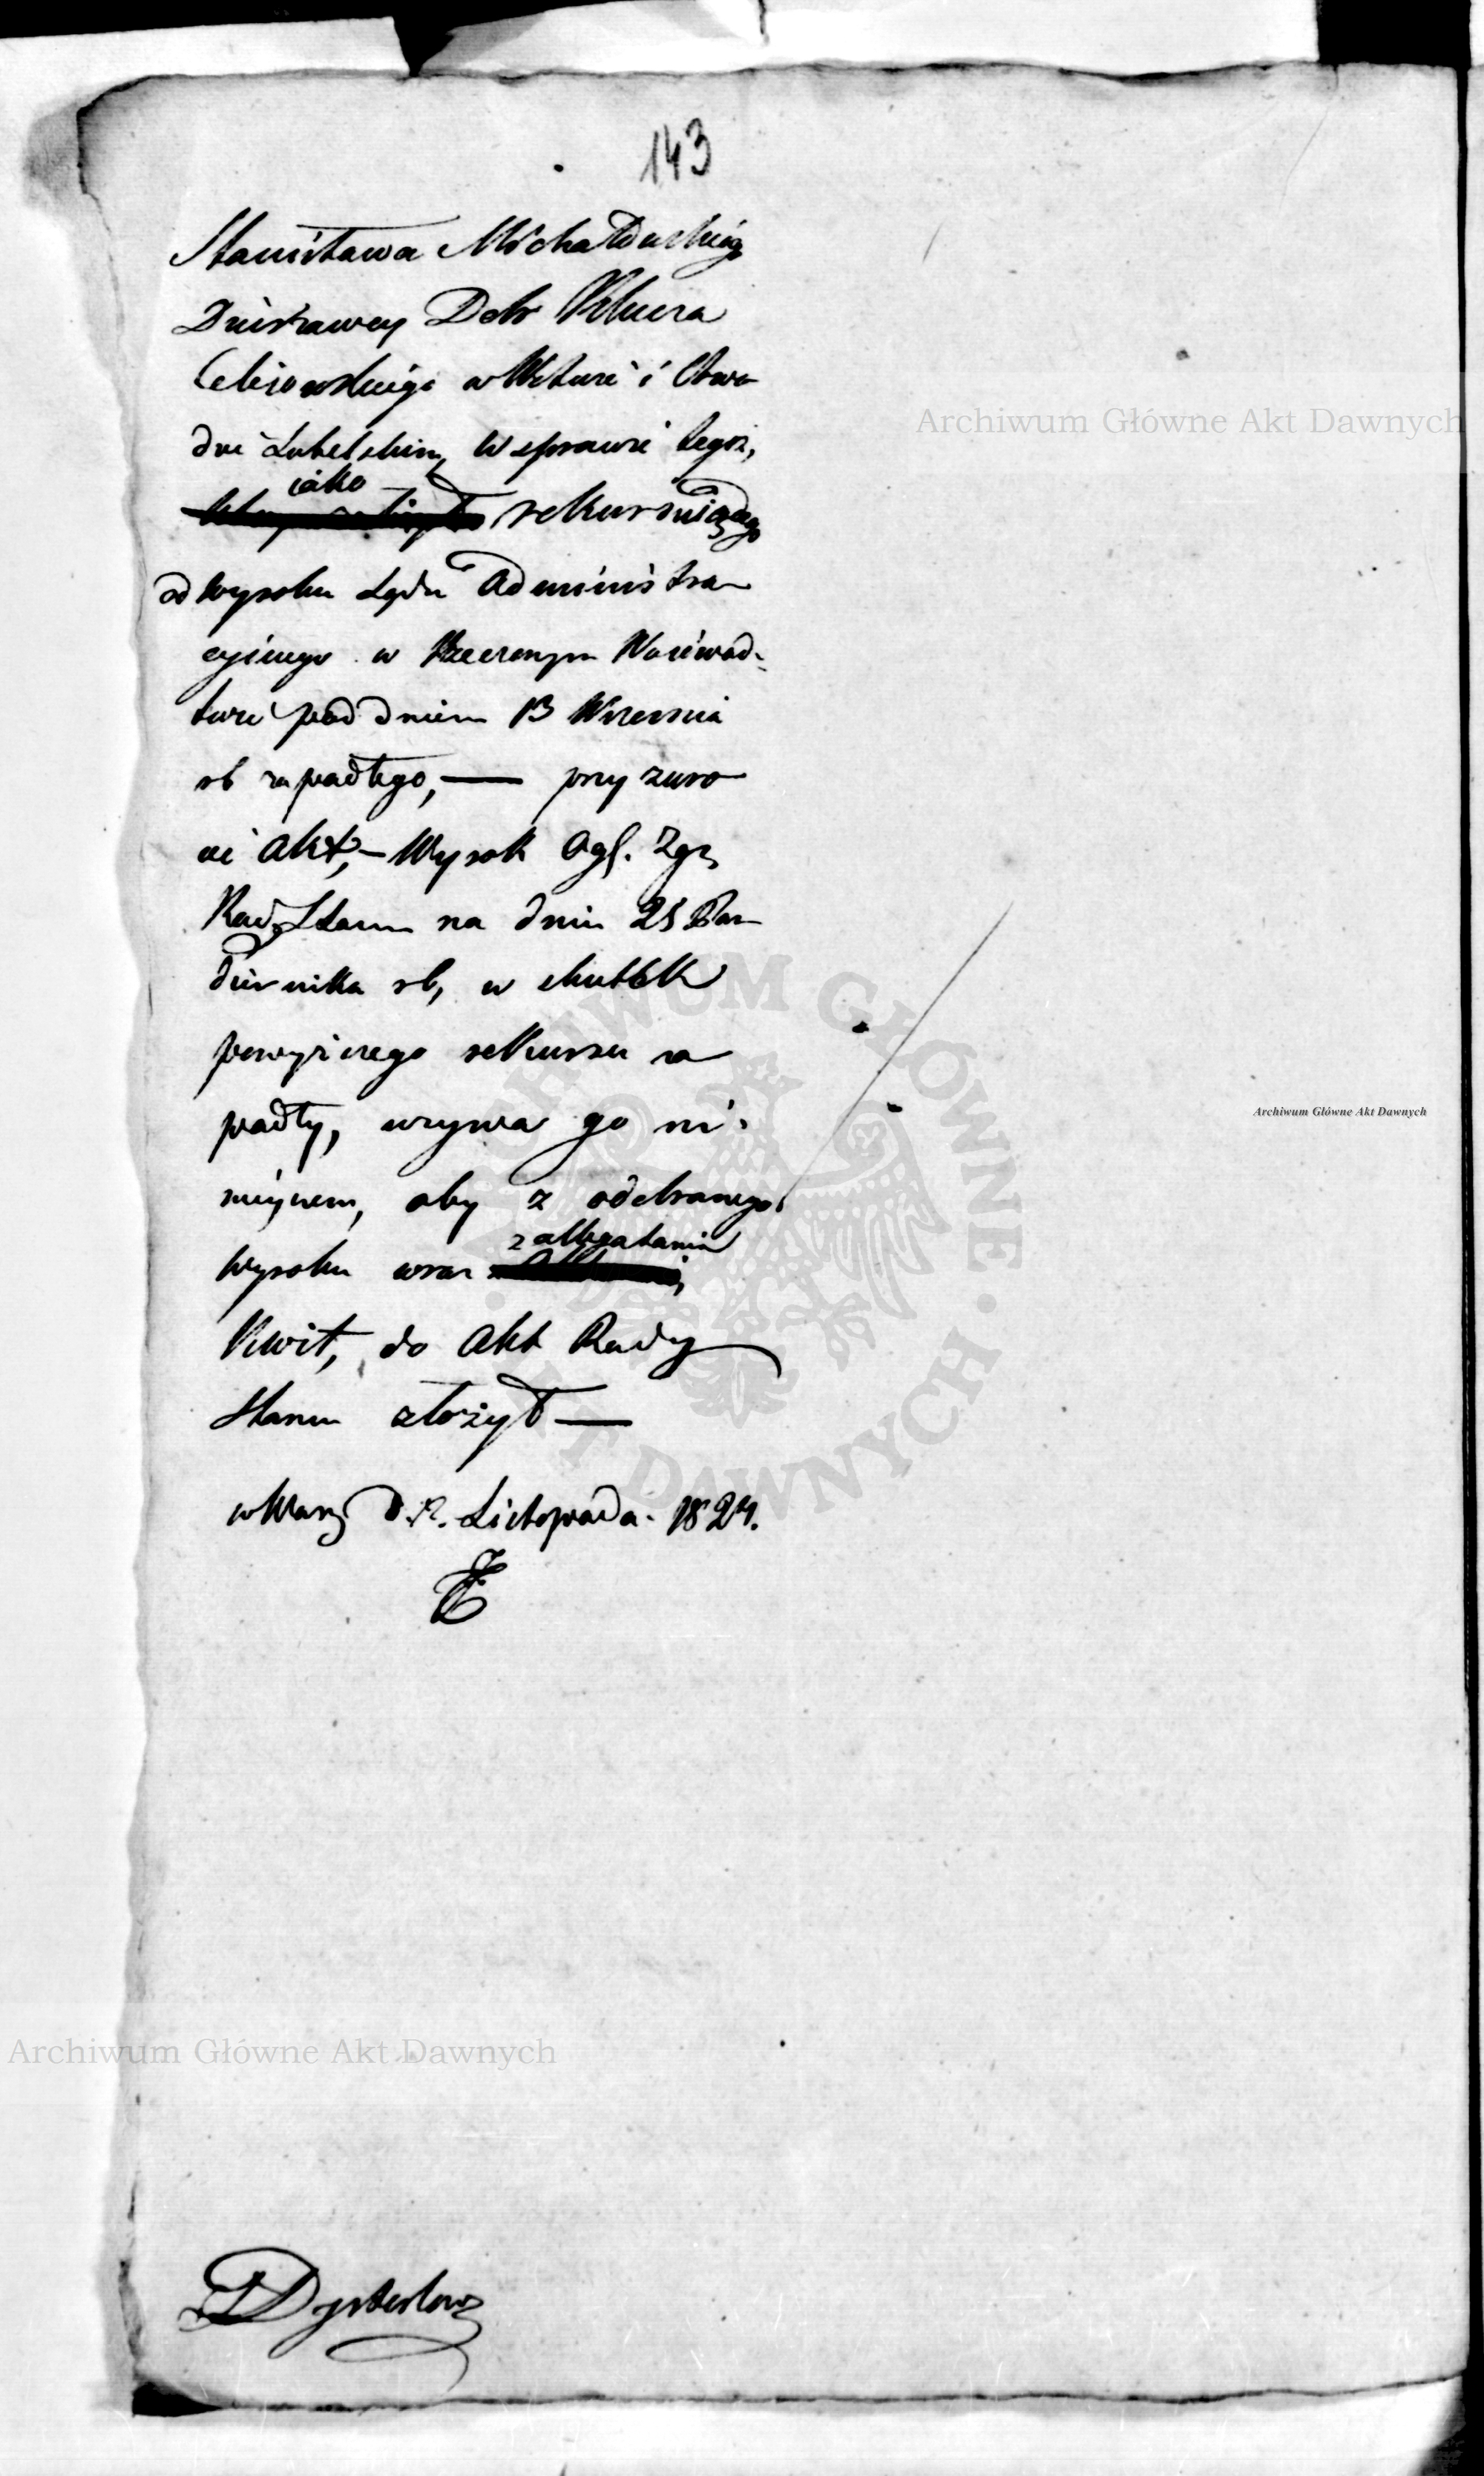 143
Stanisława Michałowskieg
Dzierżawcy Dobr Klucza
Celejowskiego w Wdztwie i Obwo
dzie Lubelskim, w sprawie tegoż,
iako
rekursuiącego
od Wyroku Sądu Administra
cyinego w Rzeczonym Woiewódz
twie pod dniem 13 Września
rb zapadłego, — przy zwro
cie Akt, — Wyrok Ogl. Zgr.
Rady Stanu na dniu 25 Paz
dziernika rb, w skutek
powyższego rekursu za
padły, wzywa go ni-
nieyszem, aby z odebranego
z allegatami
Wyroku wraz
Kwit, do Akt Rady
Stanu złożył —
w Warsz d. 12. Listopada. 1824.
Archiwum Główne Akt Dawnych
Archiwum Główne Akt Dawnych
Archiwum Główne Akt Dawnych
ARCHIWUM GŁÓWNE • AKT DAWNYCH •